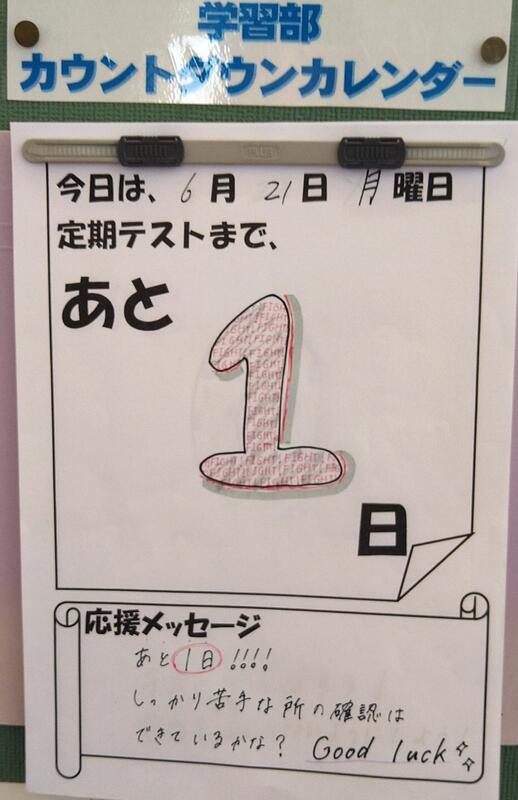 学習部
カウントダウンカレンダー
今日は、6月21日月曜日
定期テストまで、
あと
1
日
応援メッセージ
あと1日!!!!
しっかり苦手な所の確認は
できているかな? Good luck